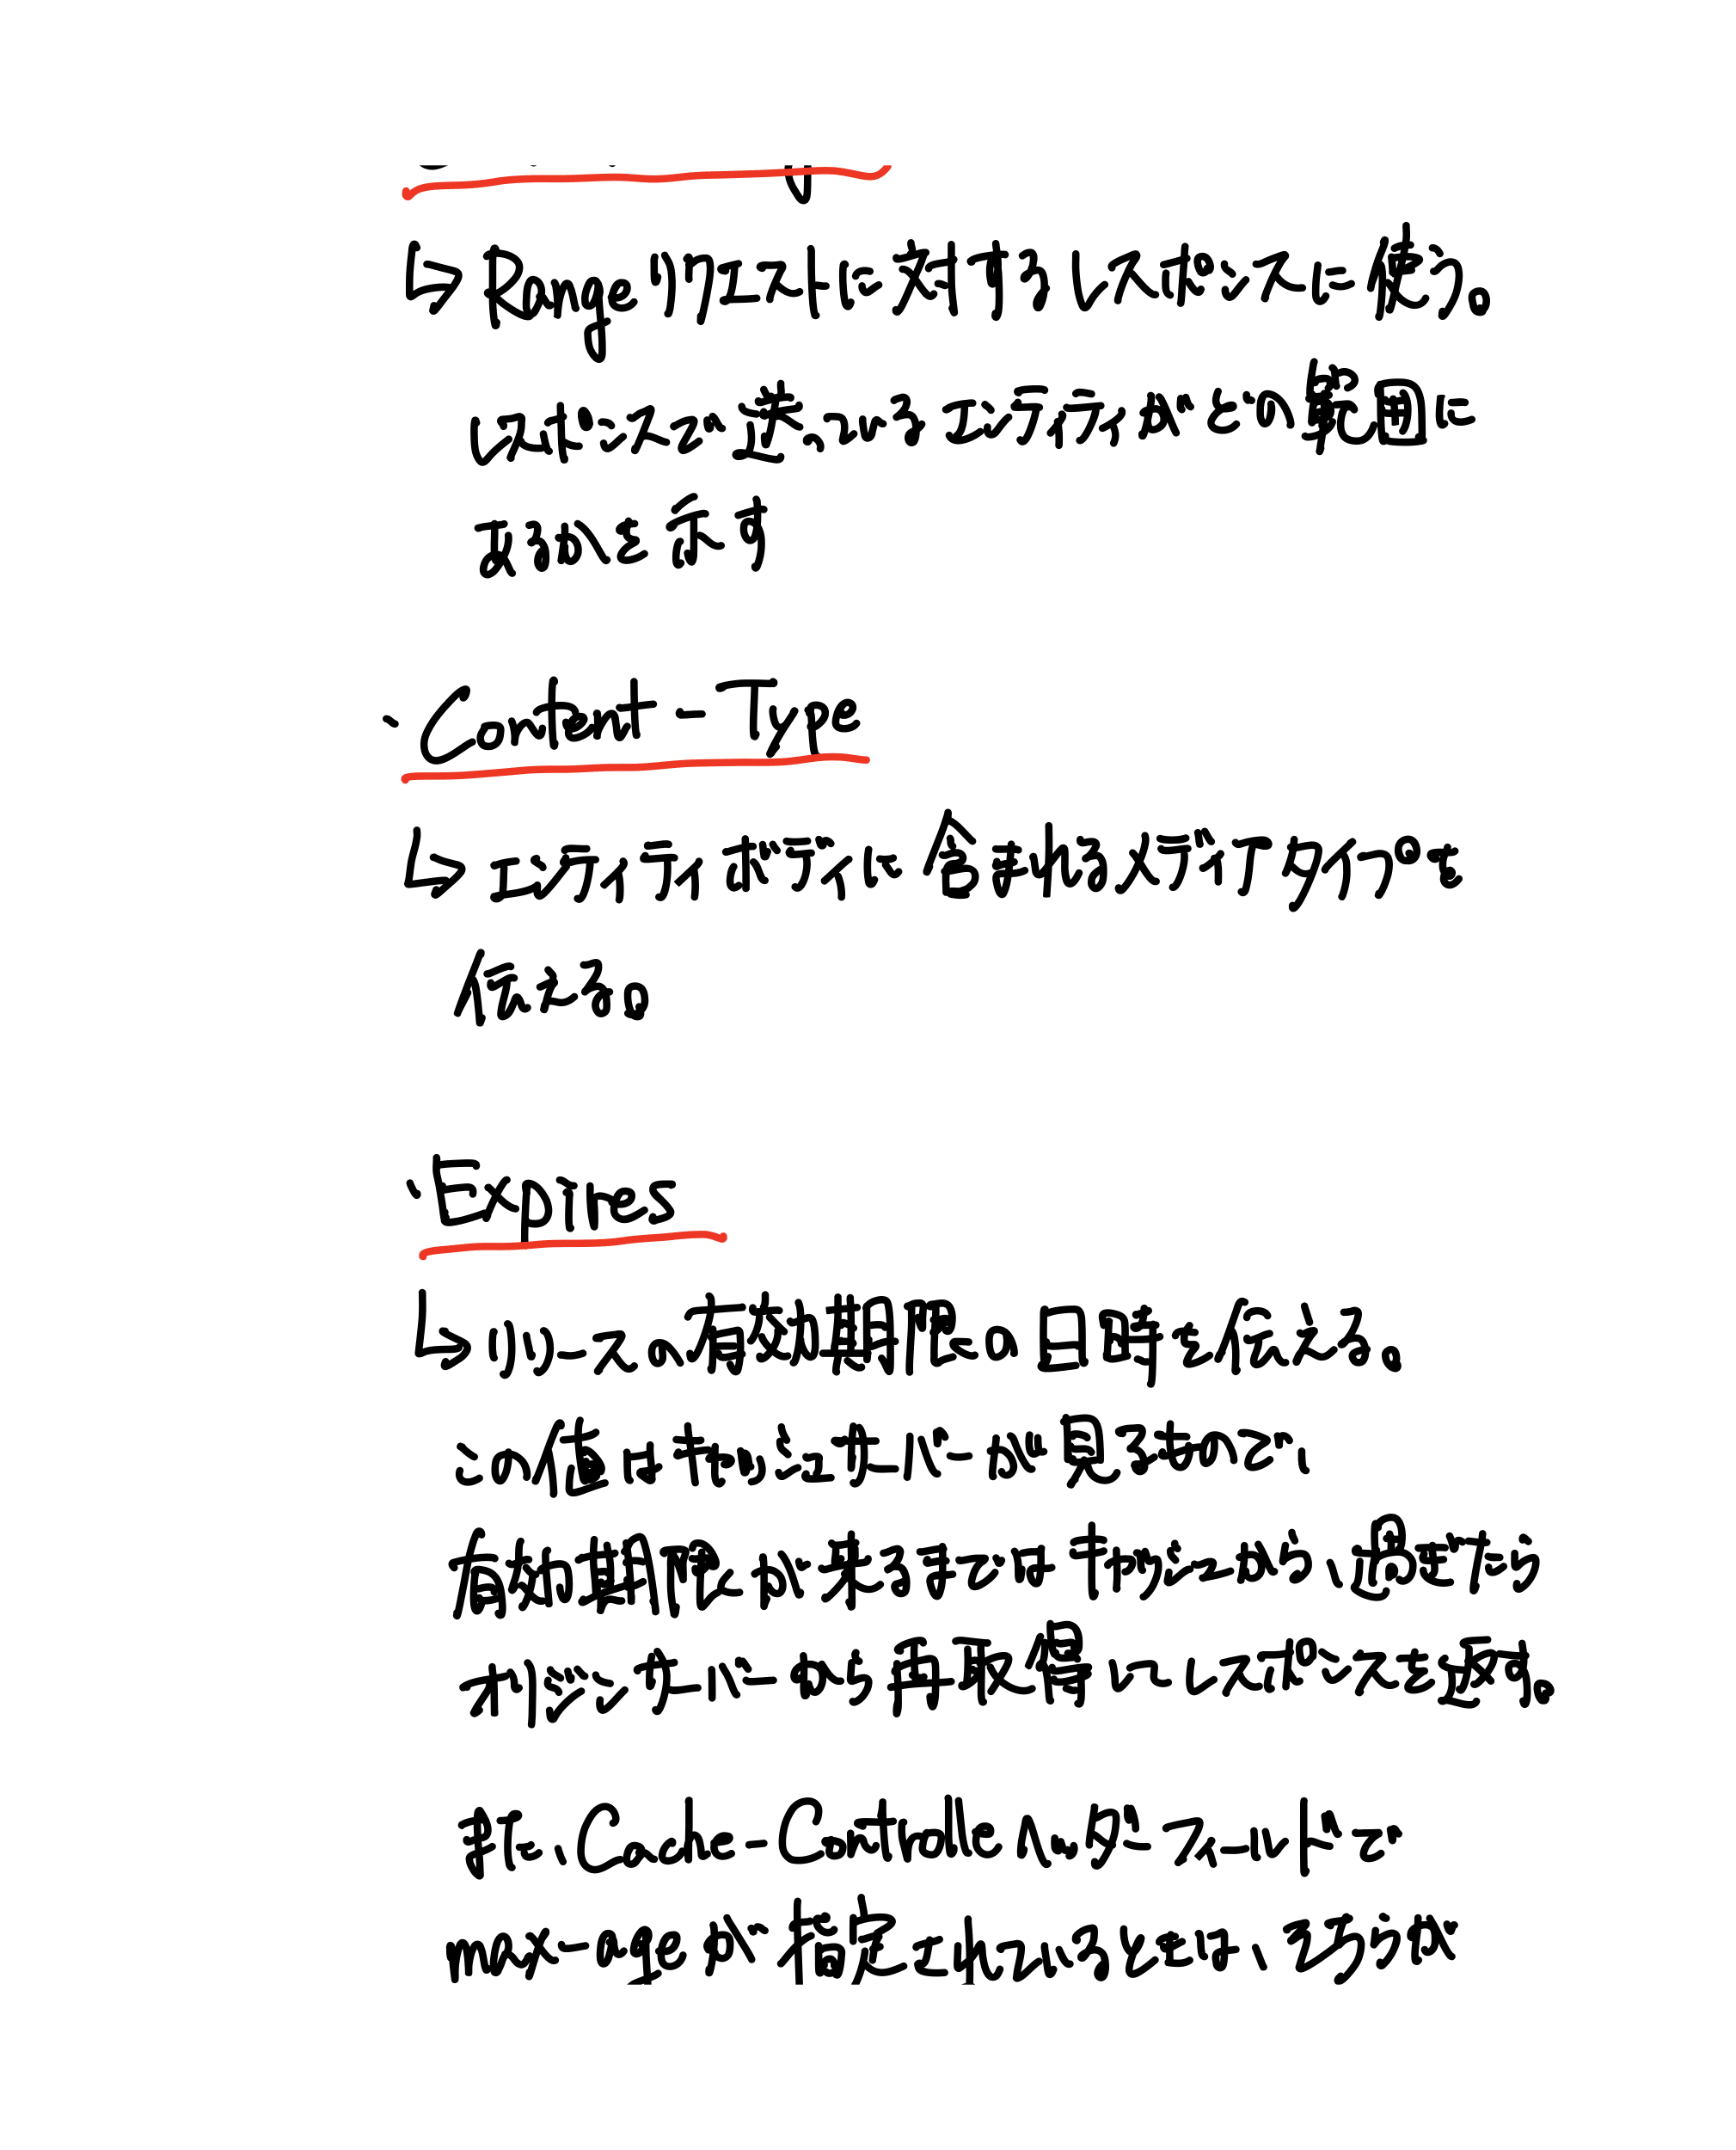 ↳ Rangeリクエストに対するレスポンスに使う。
レスポンスで送っているエンティティがどの範囲に
あるかを示す
・Content-Type
↳ エンティティボディに含まれるメディアタイプを
伝える。
・Expires
↳ リソースの有効期限の日時を伝える。
この値はキャッシュサーバーが見るもので、
有効期限が来るまではキャッシュから、過ぎたら
オリジンサーバーから再取得してレスポンスを返す。
また、Cache-Controlleヘッダーフィールドで
max-ageが指定されているときは、そちらが